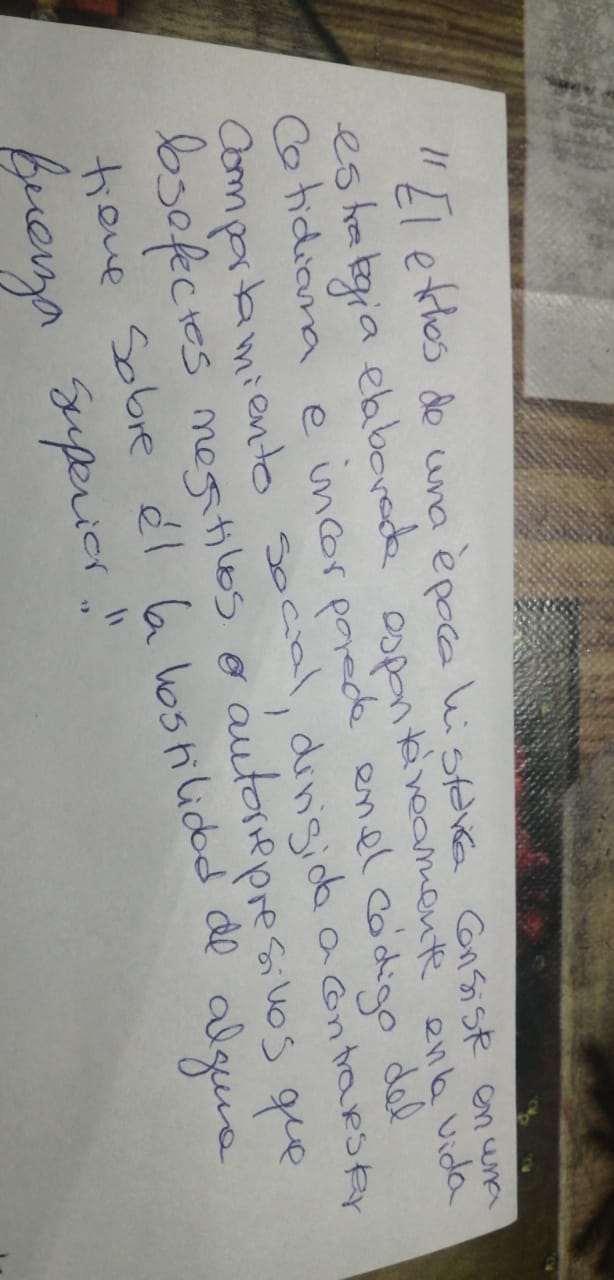 "El ethos de una época histórica consiste en una
estrategia elaborada espontáneamente en la vida
cotidiana e incorporada en el código del
comportamiento social, dirigida a contrarestar
los efectos negatibos o autorrepresivos que
tiene sobre él la hostilidad de alguna
fuerza superior."